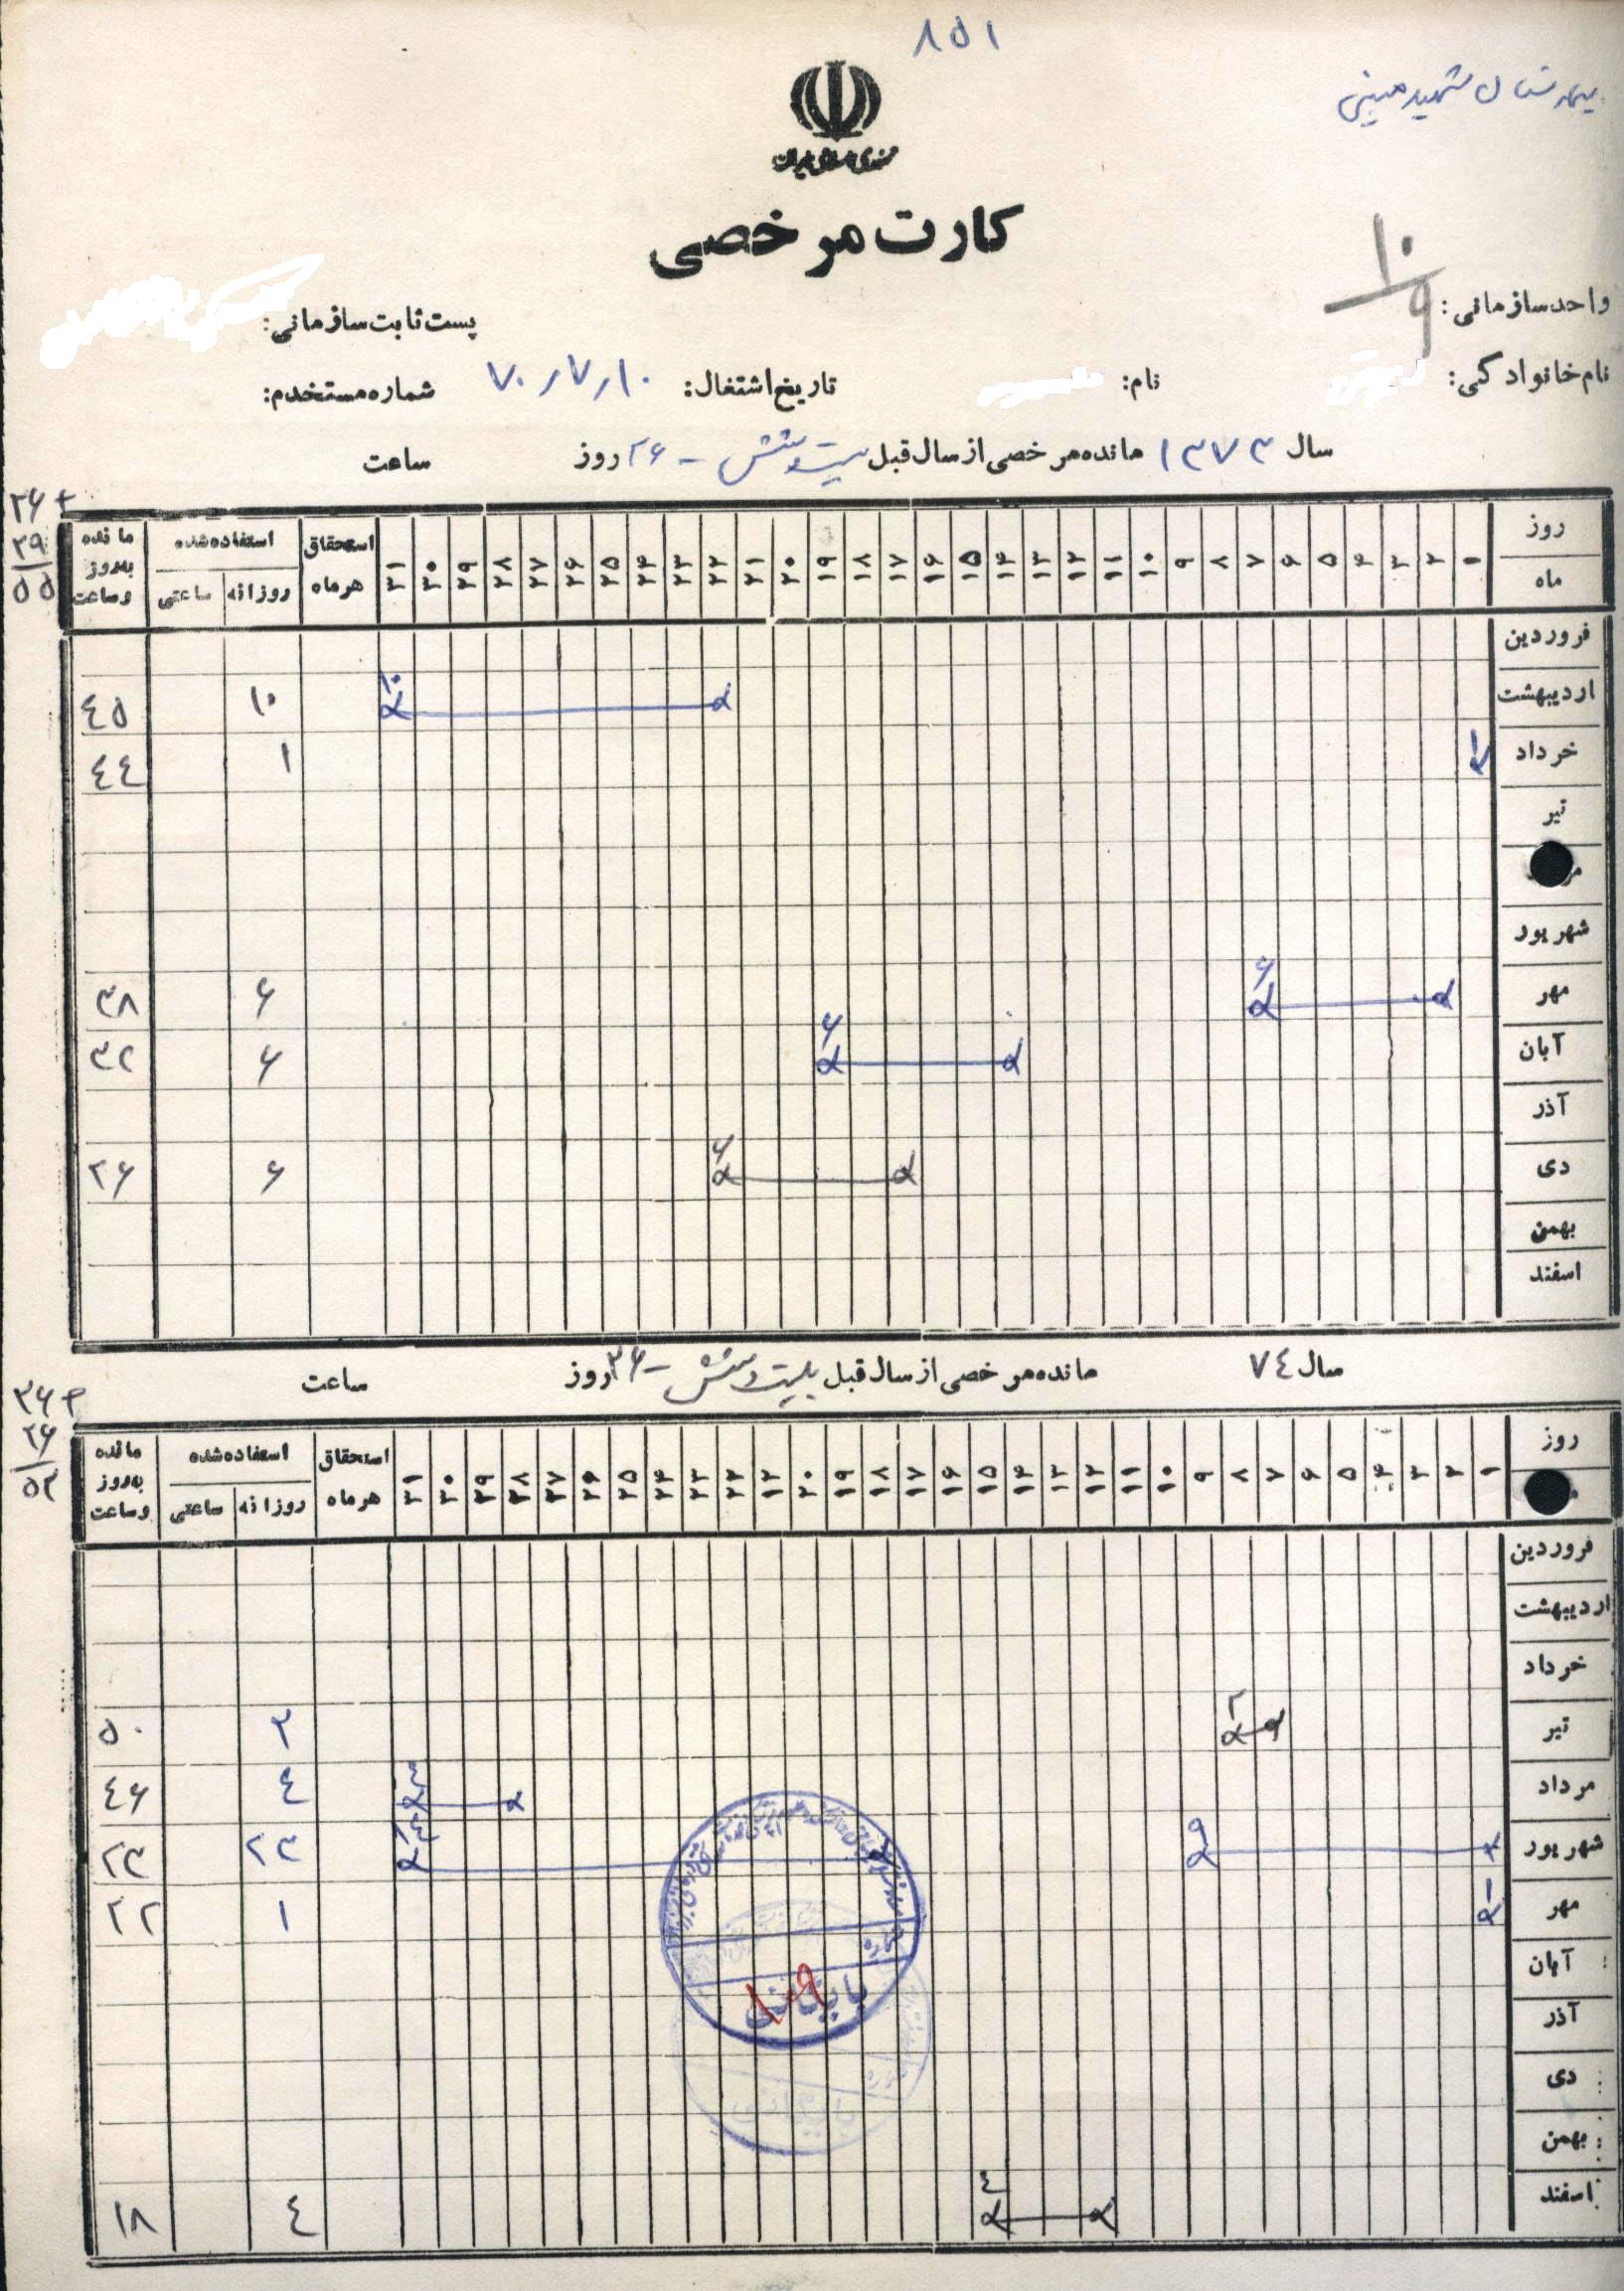 ۸۵۱
بیمارستان شهید مبینی
جمهوری اسلامی ایران
کارت مرخصی
۱۰/۹
واحد سازمانی:
پست ثابت سازمانی:
نام خانوادگی: نام: تاریخ اشتغال: ۷۰٫۷٫۱۰ شماره مستخدم:
سال ۱۳۷۳ مانده مرخصی از سال قبل بیست و شش - ۲۶ روز ساعت
۲۶ +
۲۹
۵۵
روز ۱ ۲ ۳ ۴ ۵ ۶ ۷ ۸ ۹ ۱۰ ۱۱ ۱۲ ۱۳ ۱۴ ۱۵ ۱۶ ۱۷ ۱۸ ۱۹ ۲۰ ۲۱ ۲۲ ۲۳ ۲۴ ۲۵ ۲۶ ۲۷ ۲۸ ۲۹ ۳۰ ۳۱ استحقاق هرماه استفاده شده مانده بهروز وساعت
ماه روزانه ساعتی
فروردین
اردیبهشت ۱۰ ۱۰ ۴۵
خرداد ۱ ۱ ۴۴
تیر
شهریور
مهر ۶ ۶ ۳۸
آبان ۶ ۶ ۳۲
آذر
دی ۶ ۶ ۲۶
بهمن
اسفند
سال ۷۴ مانده مرخصی از سال قبل بیست و شش - ۲۶ روز ساعت
۲۶ +
۲۶
۵۲
روز ۱ ۲ ۳ ۴ ۵ ۶ ۷ ۸ ۹ ۱۰ ۱۱ ۱۲ ۱۳ ۱۴ ۱۵ ۱۶ ۱۷ ۱۸ ۱۹ ۲۰ ۱۲ ۲۲ ۲۳ ۲۴ ۲۵ ۲۶ ۲۷ ۲۸ ۲۹ ۳۰ ۳۱ استحقاق هرماه استفاده شده مانده بهروز وساعت
روزانه ساعتی
فروردین
اردیبهشت
خرداد
تیر ۲ ۲ ۵۰
مرداد ۴ ۴ ۴۶
شهریور ۹ ۱۴ ۲۳ ۲۳
مهر ۱ ۱ ۲۲
آبان
شماره
بایگانی
۱۰۹
آذر
دی
بهمن
اسفند ۴ ۴ ۱۸